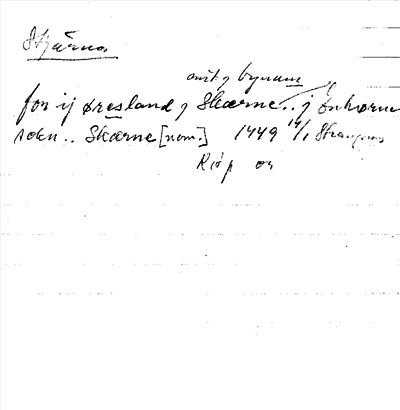 Stjärna
avit g bynam
for ij øresland g Stærne.. j Enhørne
sokn.. Stærne [nom.] 1449 14/1 Strängnäs
RAp or